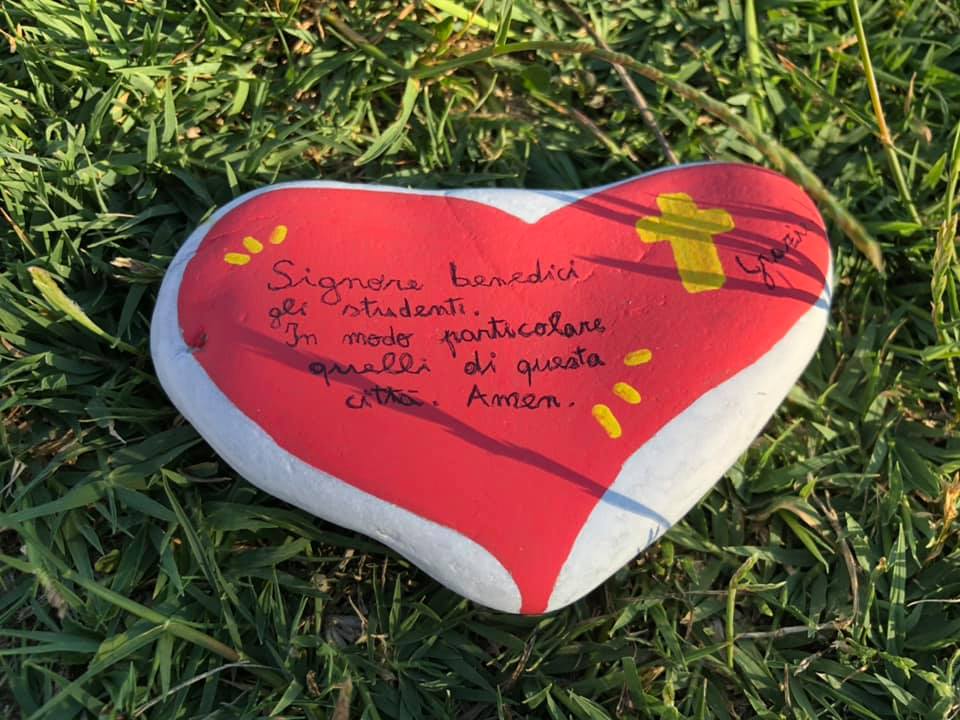 Signore benedici
gli studenti.
In modo particolare
quelli di questa
città. Amen.